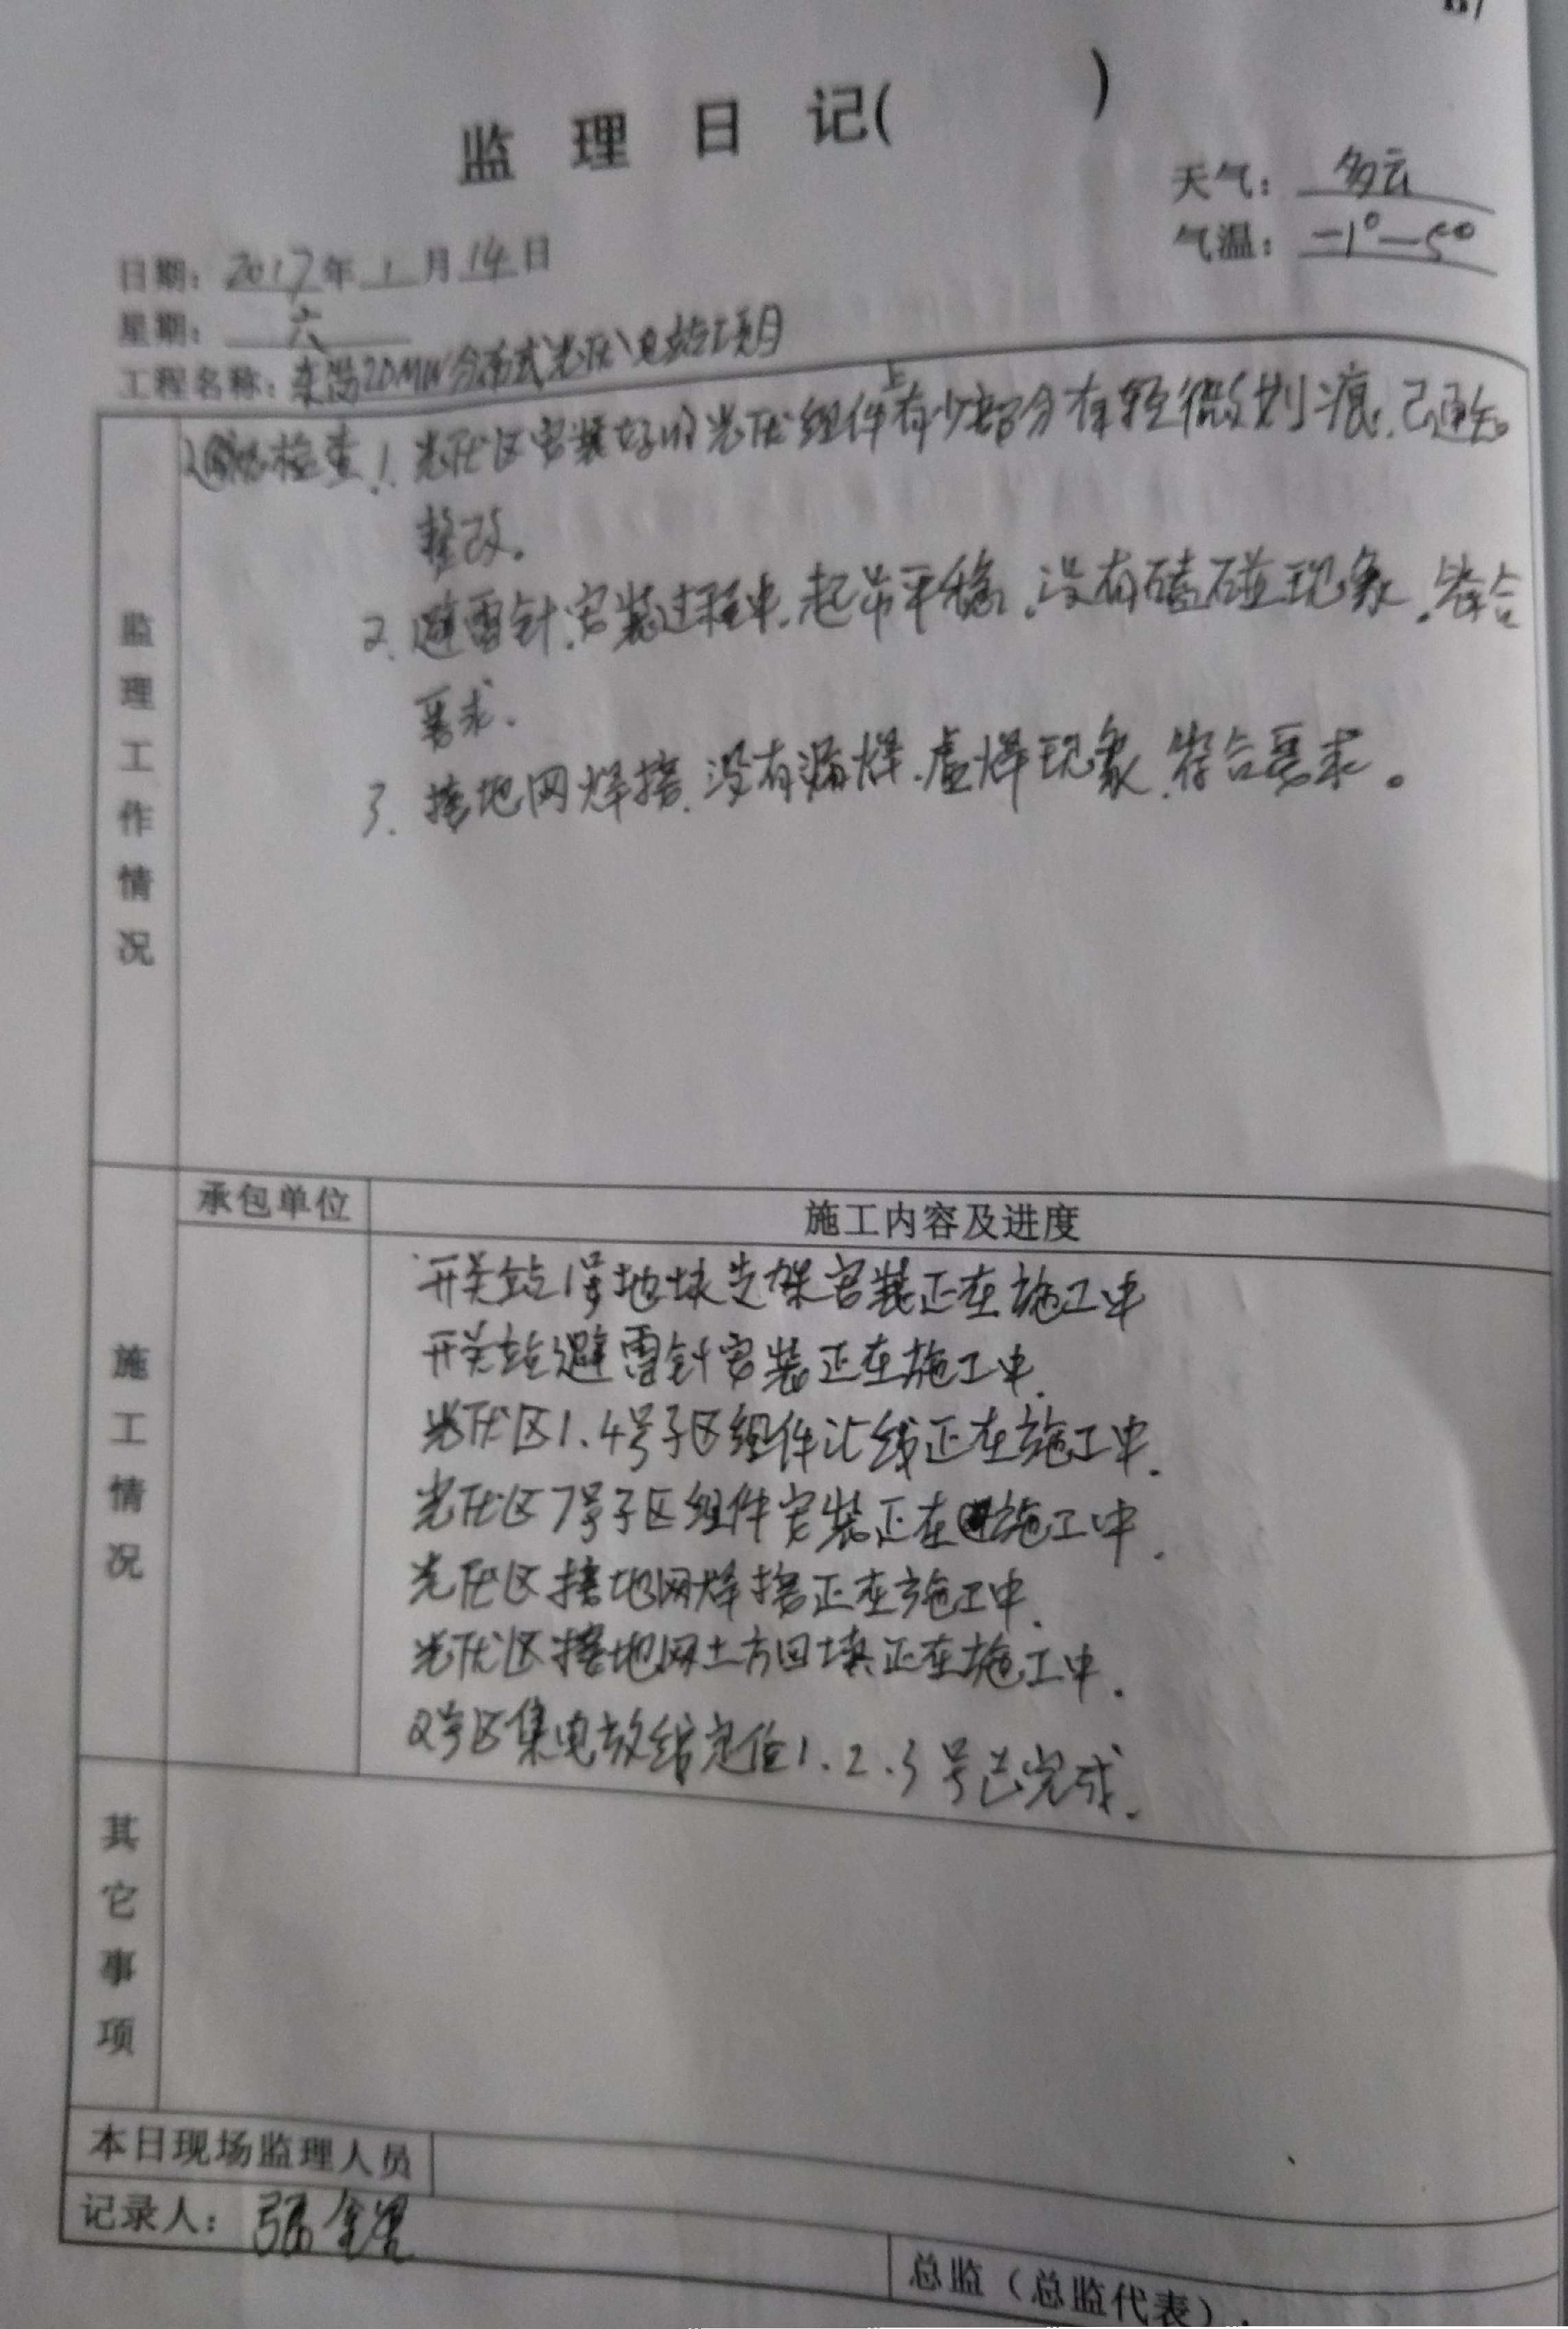 监理日记( )
天气：多云
气温：-1°—5°
日期：2017年1月14日
星期：六
工程名称：20MW分布式光伏电站项目
检查1.光伏区安装好的光伏组件上有少部分有轻微划痕，已通知
整改。
2.避雷针安装过程中，起吊平稳，没有磕碰现象，符合
要求.
3.接地网焊接，没有漏焊、虚焊现象，符合要求。
监理工作情况
承包单位 施工内容及进度
开关站1号地块支架安装正在施工中
开关站避雷针安装正在施工中.
光伏区1.4号子区组件汇线正在施工中.
光伏区7号子区组件安装正在施工中.
光伏区接地网焊接正在施工中.
光伏区接地网土方回填正在施工中.
2号区集电放线定位1.2.3号已完成.
施工情况
其它事项
本日现场监理人员
记录人：
总监（总监代表）